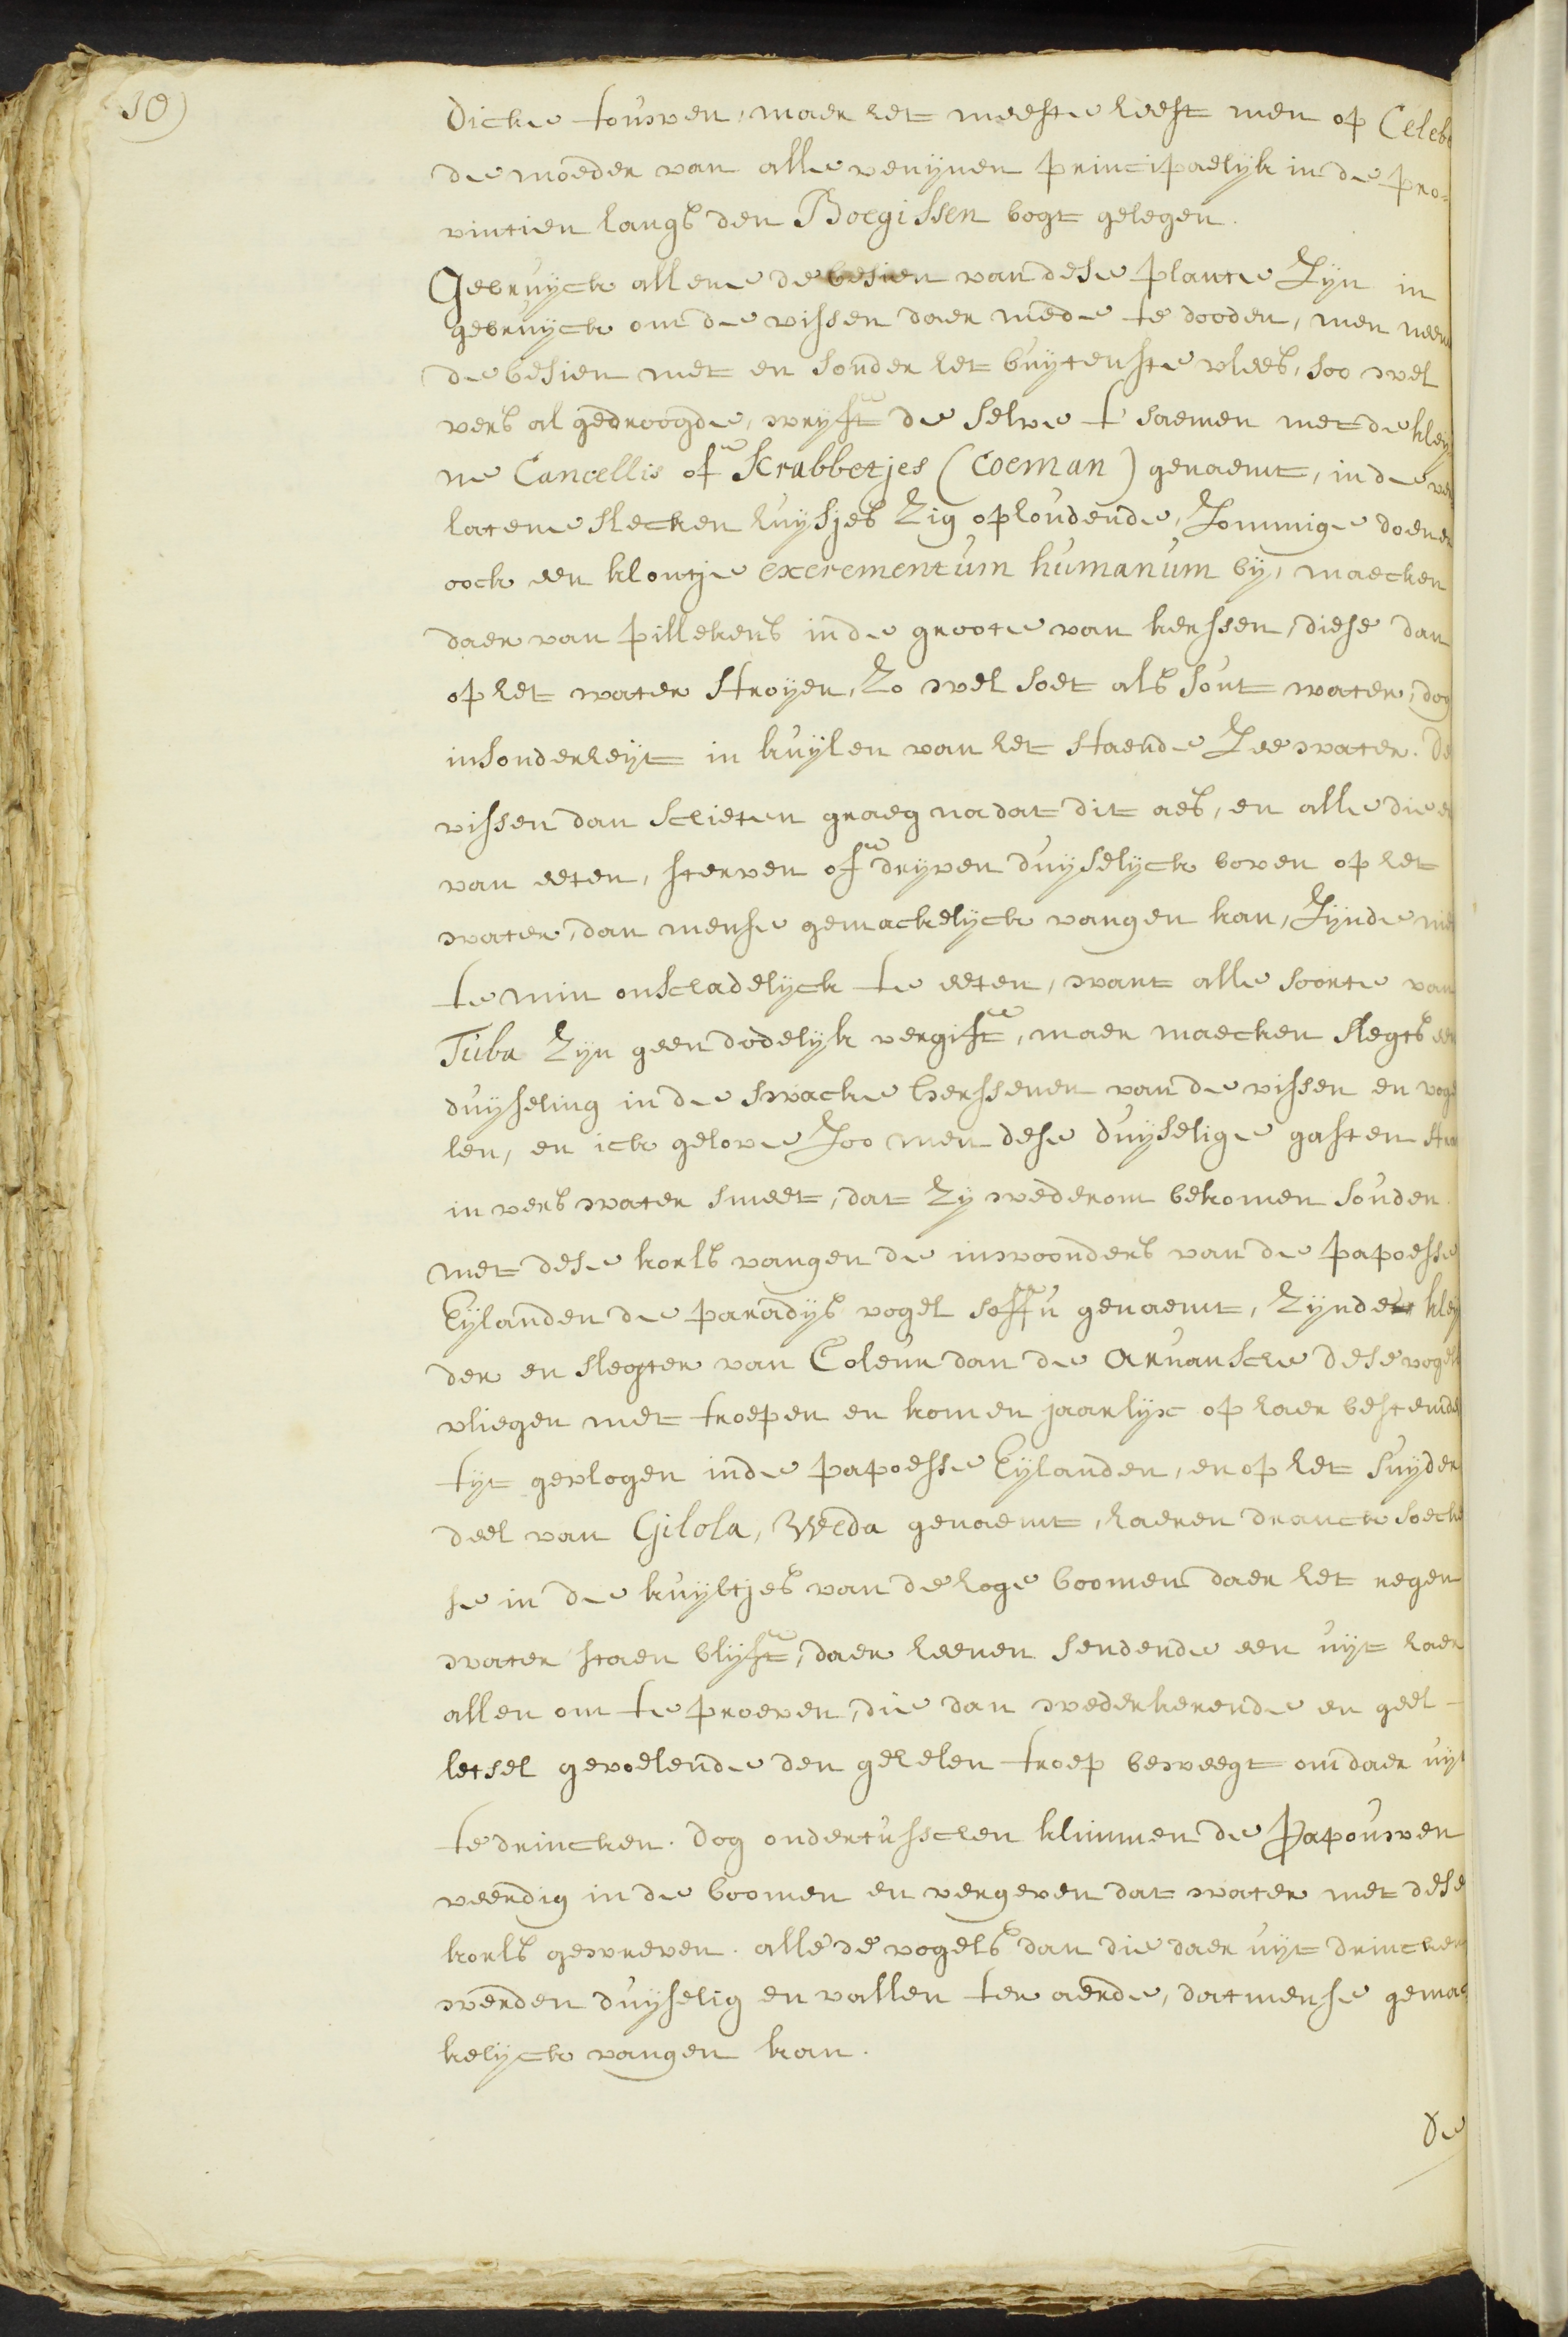 10)
dicke touwen, maer het meeste heeft men op Celeb
de moeder van alle venijnen principaelijk in de pro-
vintien langs den Boegissen bogt gelegen.
Gebruyck allene de besien van dese plante Zijn in
gebruyck om de vissen daer mede te dooden, men neem
de besien met en sonder het buytenste vlees, soo wel
vers al gedroogde, wryft de selve t saemen met de kley
ne Cancellis of Krabbetjes (Coeman) genaemt, in de ver
latene slecken huysjes Zig ophoudende, Zommige doen er
ock een klontje excrementum humanum by, maecken
daer van pillekens in de groote van kerssen, diese dan
op het water stroyen, Zo wel soet als sout water, dog
insonderheyt in kuylen van het staende Zee water. De
vissen dan schieten graeg na dat dit aes, en alle die er
van eeten, sterven of dryven duyselyck boven op het
water, dan mense gemackelyck vangen kan, Zynde nie
te min onschadelyck te eeten, want alle soorte van
Tuba Zyn geen dodelyk vergift, maer maecken slegts een
duyseling in de swacke herssenen van de vissen en voge
len, en ick gelove Zoo men dese duyselige gasten stra
in vers water smeet, dat Zy wederom bekomen souden.
met dese korls vangen de inwoonders van de papoesse
Eylanden de paradys vogel soffu genaemt, Zynde kley
der en slegter van Coleur dan de Aruansche dese vogels
vliegen met troepen en komen jaarlyx op haer bestemde
tyt gevlogen in de papoesse Eylanden, en op het suyder
deel van Gilola, Weda genaemt, haeren dranck soecke
se in de kuyltjes van de hoge boomen daer het regen
water staen blyft, daer heenen sendende een uyt haer
allen om te proeven, die dan wederkerende en geel
letsel gevoelende den gehelen troep beweegt om daer uyt
te drincken. dog ondertusschen klimmen de Papouwen
veerdig in de boomen en vergeven dat water met dese
korls gewreven. alle de vogels dan die daer uyt drincken
werden duyselig en vallen ter aerde, dat mense gemac
kelyck vangen kan.
De